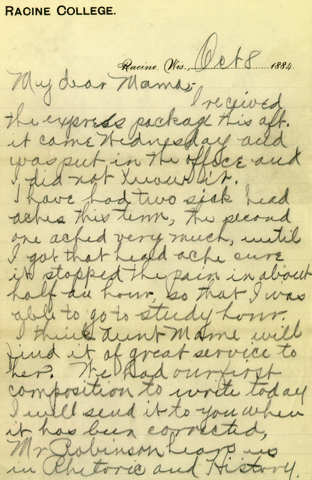 RACINE COLLEGE.
Racine, Wis., Oct 8 1884
My dear Mama,
I received
the express package this aft.
it came Wednesday and
was put in the office and
I did not know it.
I have had two sick head
aches this term, the second
one ached very much, until
I got that head ache sure
it stopped the pain in about
half an hour, so that I was
able to go to study hour.
I think Aunt Mame will
find it of great service to
her. We had our first
composition to write today
I will send it to you when
it has been corrected,
Mr Robinson hears us
in Rhetoric and History.